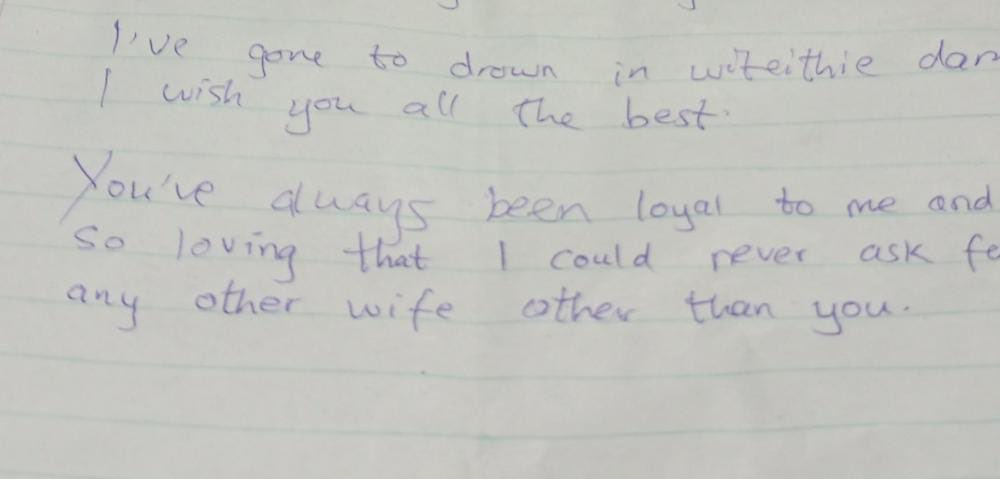 I've gone to drown in witeithie
I wish you all the best.
You've always been loyal to me and
so loving that I could never ask
any other wife other than you.